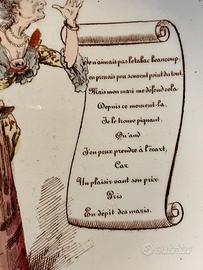 Je n'aimais pas le tabac beaucoup.
en prenais peu souvent point du tout.
Mais mon mari me défend cela
Depuis ce moment-là.
Je le trouve piquant,
Qu'and
J'en peux prendre à l'écart,
Car
Un plaisir vaut son prix
Pris
En dépit des maris.